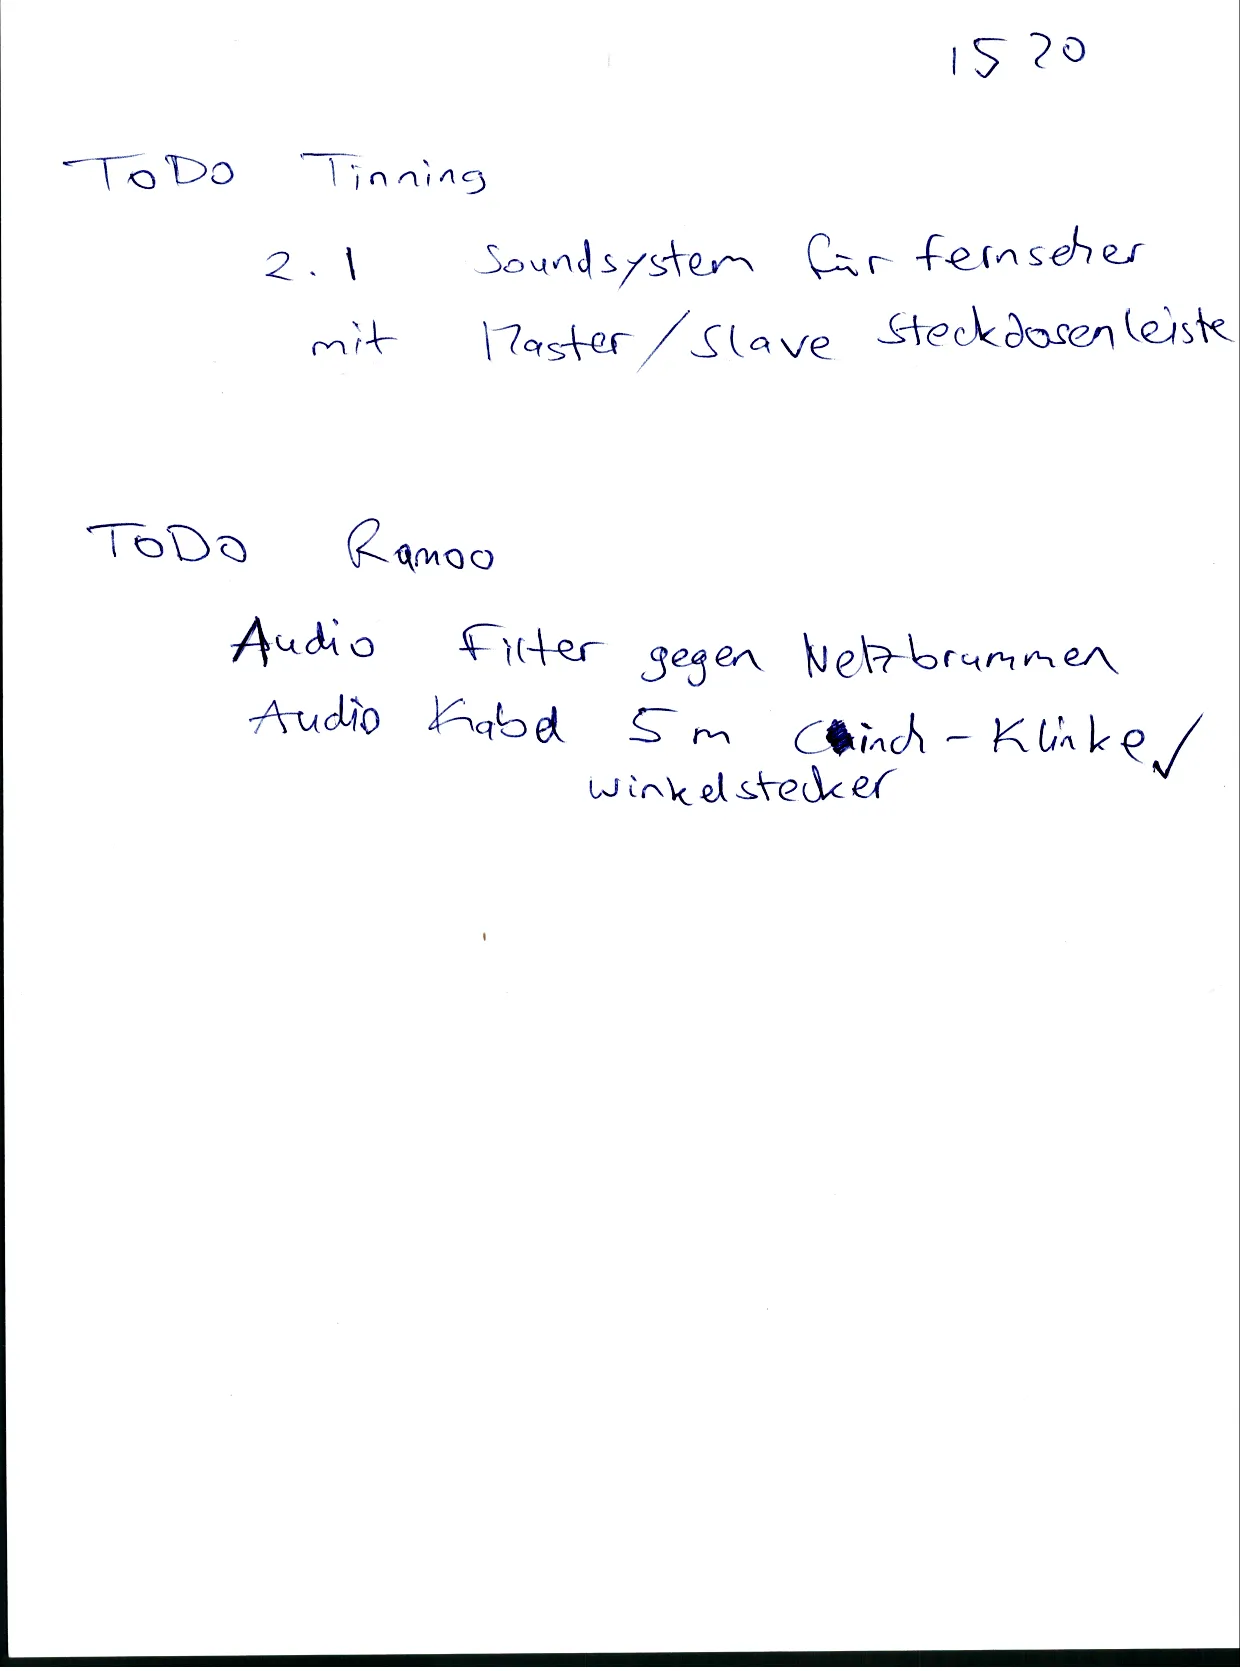 15 20
ToDo Tinning
2.1 Soundsystem für Fernseher
mit Master/Slave Steckdosenleiste
ToDo Ramoo
Audio Filter gegen Netzbrummen
Audio Kabel 5m Cinch - Klinke ✓
Winkelstecker